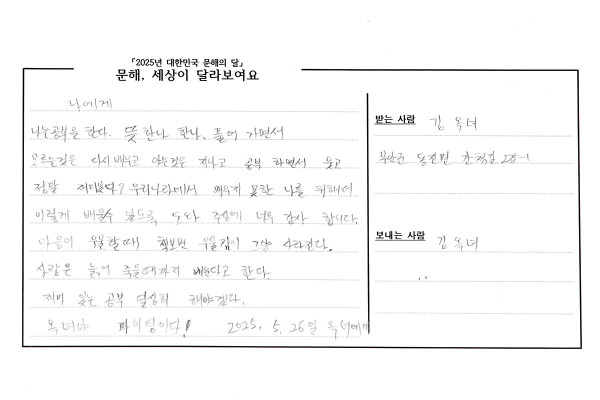 「2025년 대한민국 문해의 달」
문해, 세상이 달라보여요
나에게
나는 공부을 한다. 뜻 한나 한나, 풀어 가면서
모르는것은 다시 배우고 아는것은 지나고 공부 하면서 웃고
정말 재미있다? 우리나라에서 배우지 못한 나를 위해서
이렇게 배울수 있도록 도와 주심에 너무 감사 합니다.
마음이 우울할때 책보면 우울감이 그냥 사라진다.
사람은 늙어 죽을때까지 배운다고 한다.
재미 있는 공부 열심히 해야겠다.
옥녀야 파이팅이다! 2025. 5. 26일 옥녀에게
받는 사람 김옥녀
부안군 동진면
보내는 사람
김옥녀